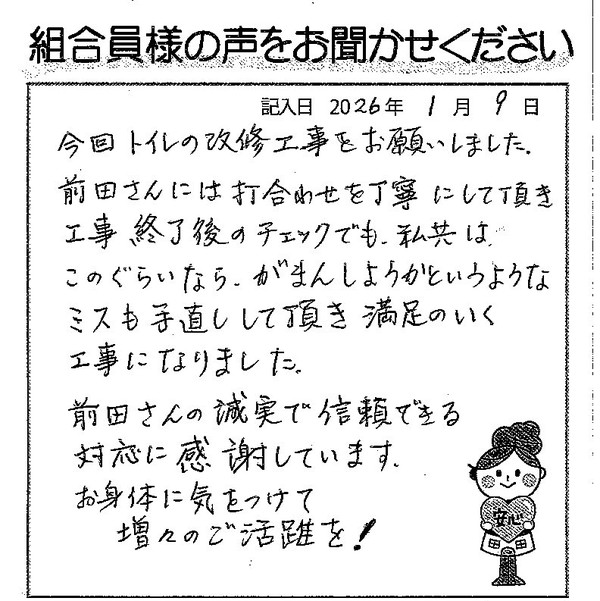 組合員様の声をお聞かせください
記入日 2026年 1月 9日
今回トイレの改修工事をお願いしました.
前田さんには打合わせを丁寧にして頂き
工事終了後のチェックでも、私共は
このぐらいなら、がまんしようかというような
ミスも手直しして頂き満足のいく
工事になりました.
前田さんの誠実で信頼できる
対応に感謝しています.
お身体に気をつけて
増々のご活躍を!
安心